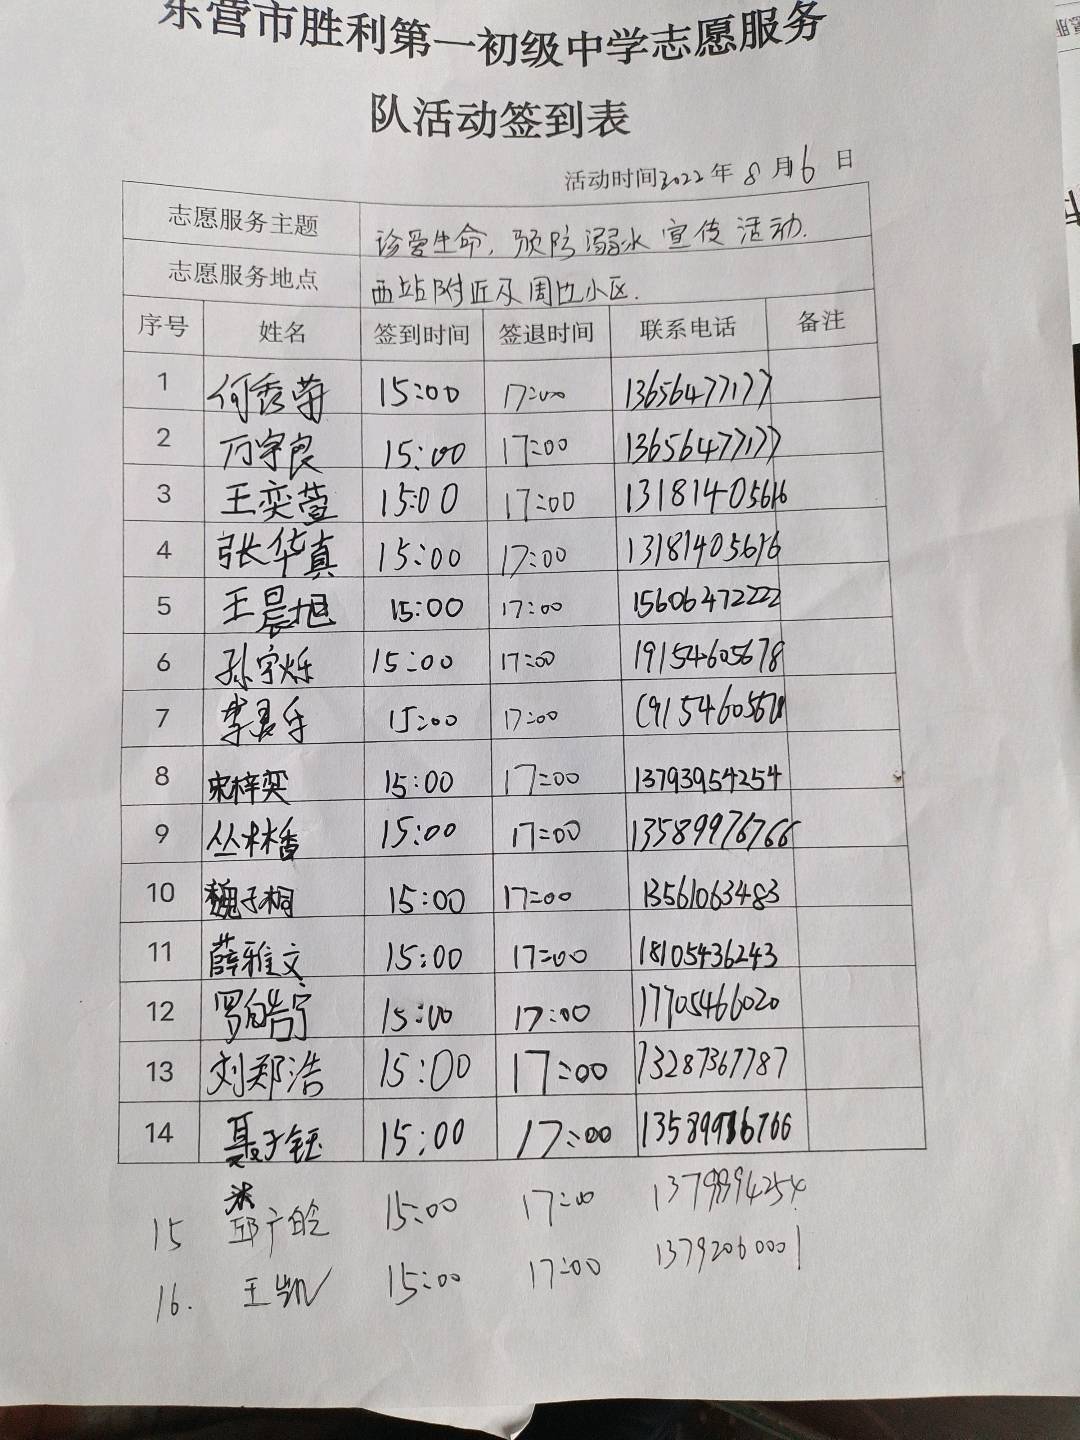 东营市胜利第一初级中学志愿服务
队活动签到表
活动时间2022年8月6日
志愿服务主题 珍爱生命,预防溺水宣传活动.
志愿服务地点 西站附近及周边小区.
序号 姓名 签到时间 签退时间 联系电话 备注
1 何秀荣 15:00 17:00 13656477177
2 万宇良 15:00 17:00 13656477177
3 王奕萱 15:00 17:00 13181405616
4 张华真 15:00 17:00 13181405616
5 王晨旭 15:00 17:00 15606472222
6 孙宇烁 15:00 17:00 19154605678
7 李 乐 15:00 17:00 19154605678
8 宋梓奕 15:00 17:00 13793954254
9 丛林 15:00 17:00 13589976766
10 魏子桐 15:00 17:00 13561063483
11 薛雅文 15:00 17:00 18105436243
12 罗皓宁 15:00 17:00 17705466020
13 刘郑浩 15:00 17:00 13287367787
14 聂子钰 15:00 17:00
15 15:00 17:00
16. 王凯 15:00 17:00 13792060001